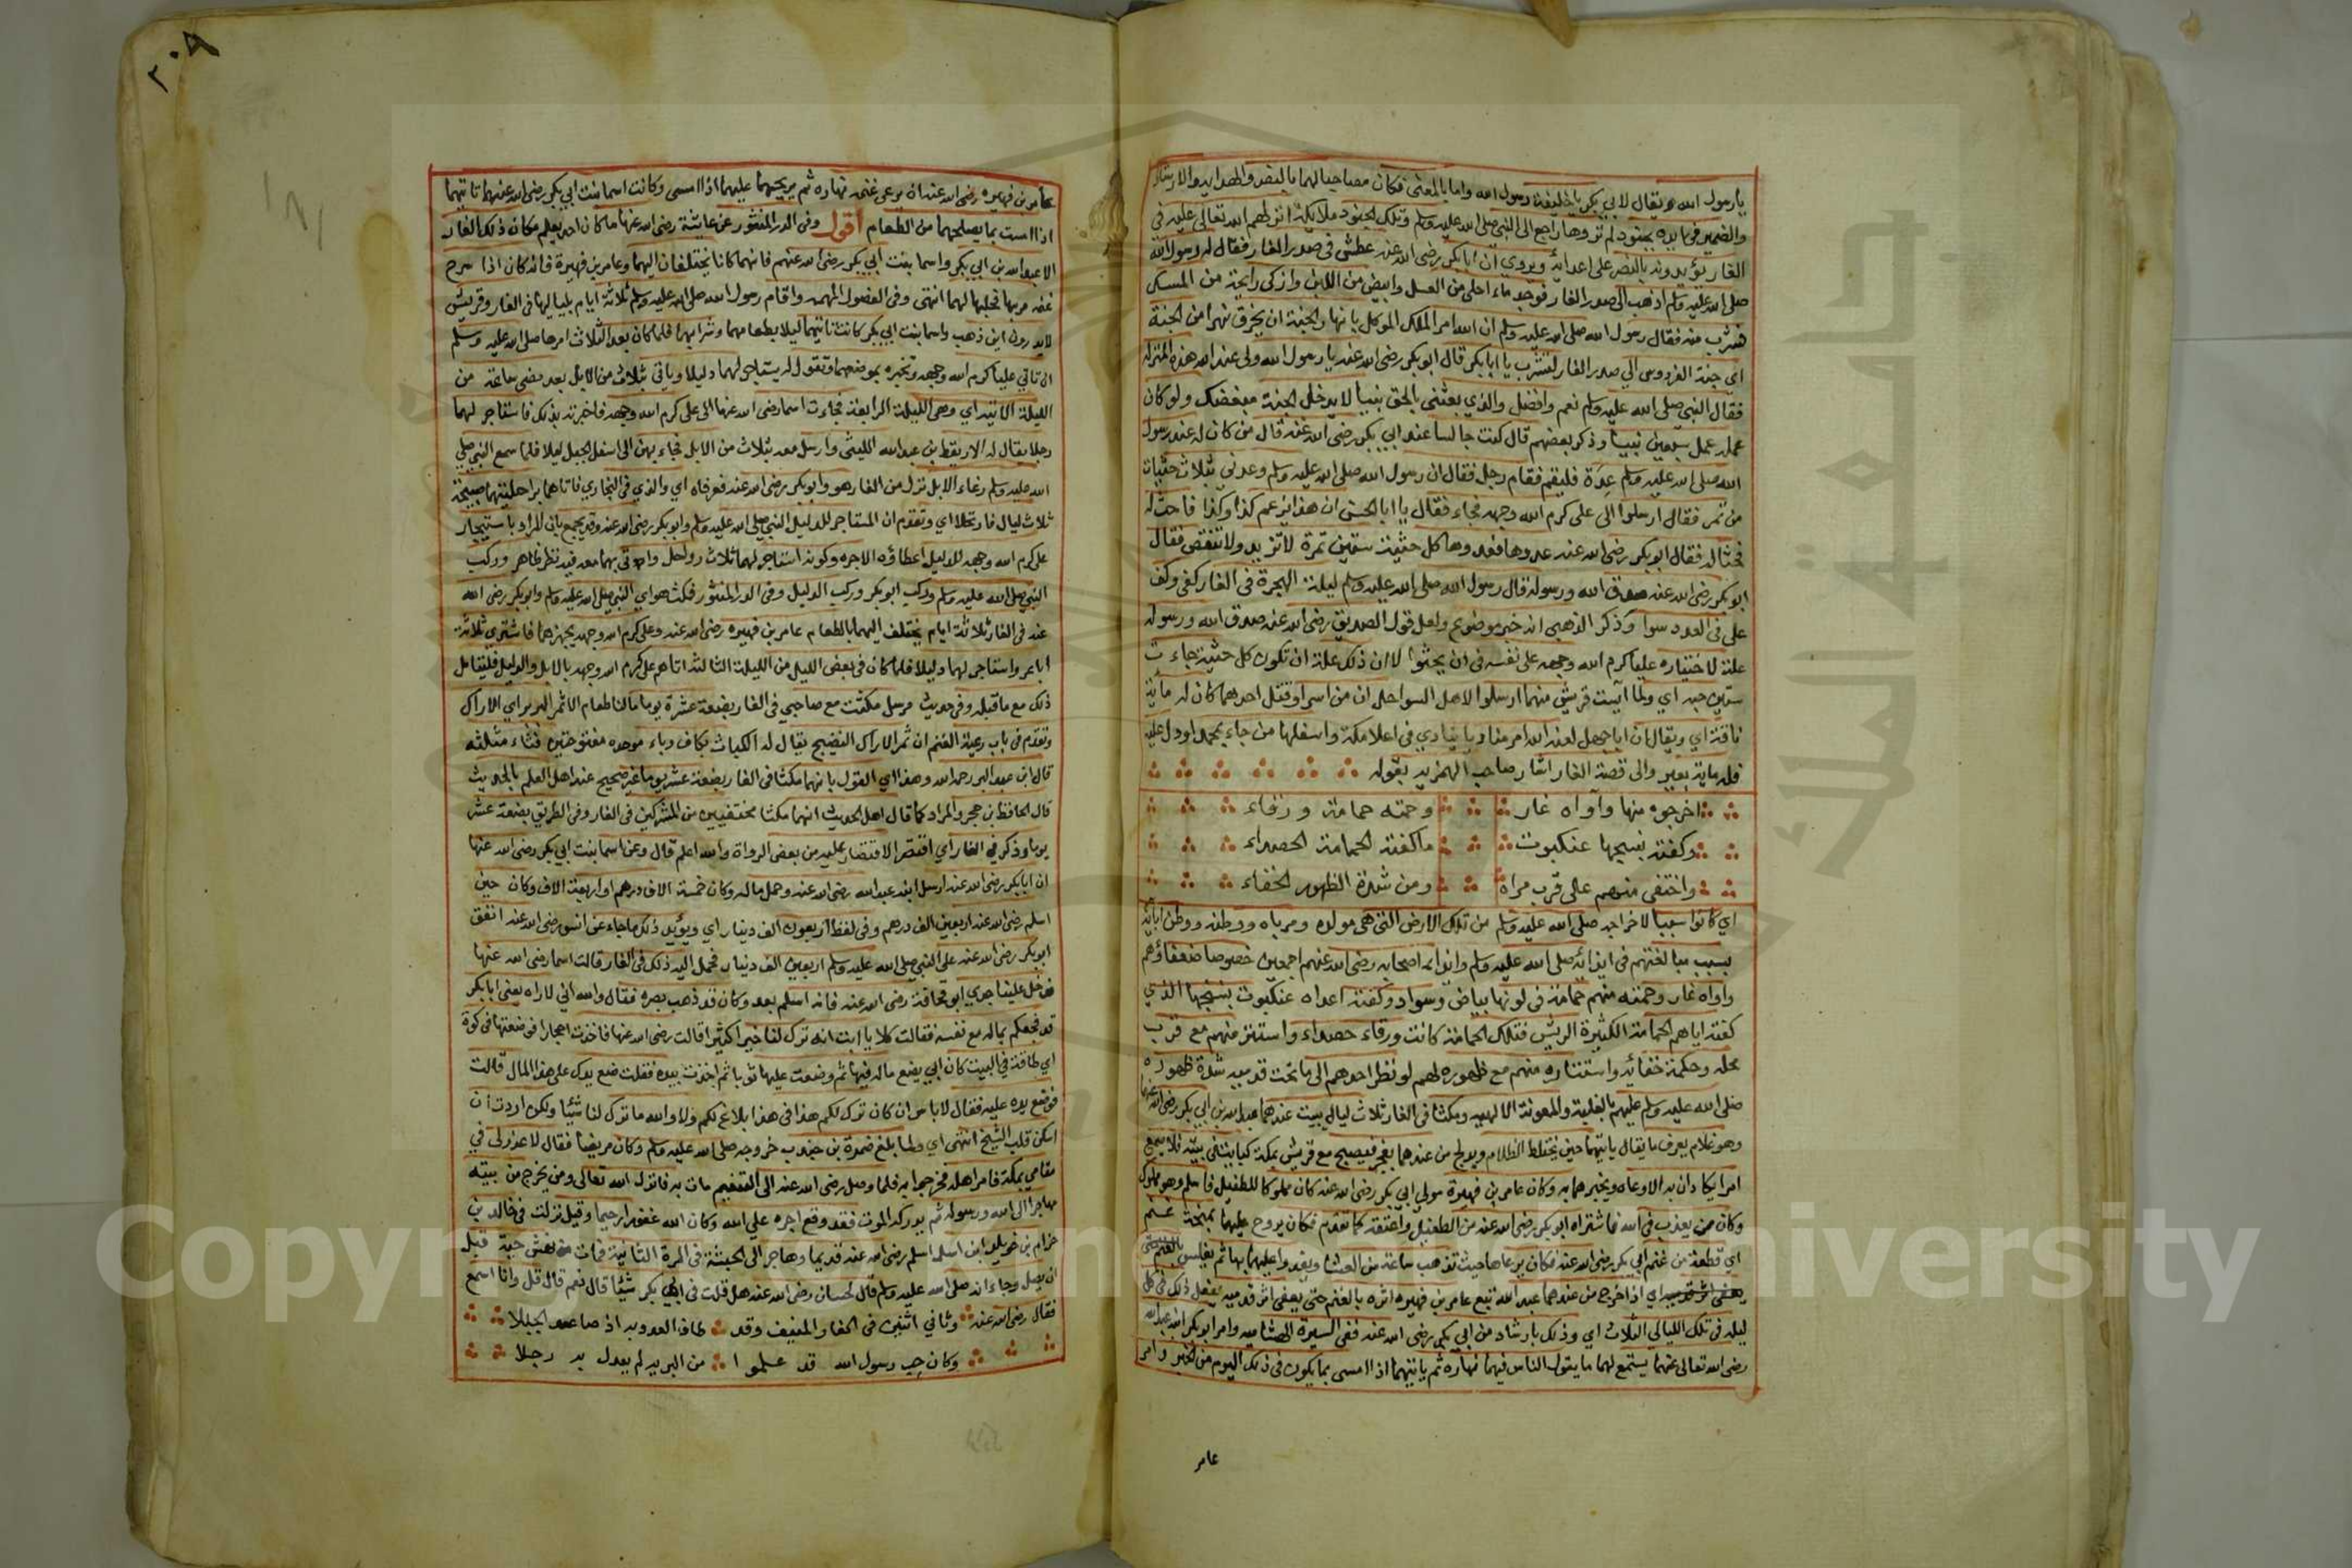 يا رسول الله ويقال لابي بكر يا خليفة رسول الله واما بالمعنى فكان مصاحبا لهما بالنصر والهداية والارشاد
والضمير في وايده بجنود لم تروها راجع الى النبي صلى الله عليه وسلم وتلك الجنود ملايكة انزلهم الله تعالى عليه في
الغار يؤيدونه بالنصر على اعدائه ويروي ان ابا بكر رضى الله عنه عطش في صدر الغار فقال له رسول الله
صلى الله عليه وسلم اذهب الى صدر الغار فوجد ماء احلى من العسل وابيض من اللبن وازكى رايحة من المسك
فشرب منه فقال رسول الله صلى الله عليه وسلم ان الله امر الملك الموكل بانهار الجنة ان يخرق نهرا من الجنة
اي جنة الفردوس الي صدر الغار لتشرب يا ابا بكر قال ابو بكر رضى الله عنه يا رسول الله ولى عند الله هذه المنزلة
فقال النبي صلى الله عليه وسلم نعم وافضل والذي بعثني بالحق نبيا لا يدخل الجنة مبغضك ولو كان
عمله عمل سبعين نبيا وذكر بعضهم قال كنت جالسا عند ابي بكر رضى الله عنه قال من كان له عند رسول
الله صلى الله عليه وسلم عدة فليقم فقام رجل فقال ان رسول الله صلى الله عليه وسلم وعدني بثلاث حثيات
من تمر فقال ارسلوا الى على كرم الله وجهه فجاء فقال يا ابا الحسن ان هذا يزعم كذا وكذا فاحث له
فحثا له فقال ابو بكر رضى الله عنه عدوها فعدوها كل حثية ستين تمرة لا تزيد ولا تنقص فقال
ابو بكر رضى الله عنه صدق الله ورسوله قال رسول الله صلى الله عليه وسلم ليلة الهجرة في الغار كفى وكف
على في العدد سوا وذكر الذهبي انه خبر موضوع ولعل قول الصديق رضى الله عنه صدق الله ورسوله
علة لاختياره عليا كرم الله وجهه على نفسه في ان يحثوا لا ان ذلك علة ان تكون كل حثية جاءت
ستين حبه اي ولما آيست قريش منهما ارسلوا لاهل السواحل ان من اسر او قتل احدهما كان له مائة
ناقة اي ويقال ان ابا جهل لعنه الله امر مناديا ينادي في اعلا مكة واسفلها من جاء بمحمد او دل عليه
فله ماية بعير والى قصة الغار اشار صاحب الهمزية بقوله
اخرجوه منها وآواه غار وحمته حمامة ورقاء
وكفته بنسجها عنكبوت ما كفته الحمامة الحصداء
واختفى منهم على قرب مراه ومن شدة الظهور الخفاء
اي كانوا سببا لاخراجه صلى الله عليه وسلم من تلك الارض التي هي مولده ومرباه ووطنه ووطن ابائه
بسبب مبالغتهم في ايذائه صلى الله عليه وسلم وايذائه اصحابه رضى الله عنهم اجمعين خصوصا ضعفاؤهم
وآواه غار وحمته منهم حمامة في لونها بياض وسواد وكفته اعداه عنكبوت بنسجها الذي
كفته اياهم الحمامة الكثيرة الريش فتلك الحمامة كانت ورقاء حصداء واستتر منهم مع قرب
محله وحكمة خفائه واستتاره منهم مع ظهوره لهم لو نظر احدهم الى ما تحت قدميه شدة ظهوره
صلى الله عليه وسلم عليهم بالغلبة والمعونة الالهيه ومكثا في الغار ثلاث ليالي يبيت عندهما عبد الله بن ابي بكر رضى الله عنهما
وهو غلام يعرف ما يقال ياتيهما حين يختلط الظلام ويدلج من عندهما بفجر فيصبح مع قريش بمكة كبايت في بيته فلا يسمع
امرا يكادان به الا وعاه ويخبرهما به وكان عامر بن فهيرة مولى ابي بكر رضى الله عنه كان مملوكا للطفيل فاسلم وهو مملوك
وكان ممن يعذب في الله فاشتراه ابو بكر رضى الله عنه من الطفيل واعتقه كما تقدم فكان يروح عليهما بمنحة غنم
اي قطعة من غنم ابي بكر رضى الله عنه فكان يرعاها حيث تذهب ساعة من العشا ويغدوا عليهما بها ثم يغلس بالغنم حتى
يعفى اثر قدميه اي اذا خرج من عندهما عبد الله تبع عامر بن فهيره اثره بالغنم حتى يعفى اثر قدميه يفعل ذلك في كل
ليلة في تلك الليالي الثلاث اي وذلك بارشاد من ابي بكر رضى الله عنه ففي السيرة الهشاميه وامر ابو بكر ابنه عبد الله
رضى الله تعالى عنهما يستمع لهما ما يقول الناس فيهما نهاره ثم ياتيهما اذا امسى بما يكون في ذلك اليوم من الخبر وامر
عامر
٢٠٨
عامر بن فهيره رضى الله عنه ان يرعى غنمه نهاره ثم يريحها عليهما اذا امسى وكانت اسما بنت ابي بكر رضى الله عنهما تاتيهما
اذا امست بما يصلحهما من الطعام أقول وفي الدر المنثور عن عائشة رضى الله عنها ما كان احد يعلم مكان ذلك الغار
الا عبد الله بن ابي بكر واسما بنت ابي بكر رضى الله عنهم فانهما كانا يختلفان اليهما وعامر بن فهيرة فانه كان اذا سرح
غنمه مر بها فحلبها لهما انتهى وفي الفصول المهمه واقام رسول الله صلى الله عليه وسلم ثلاثة ايام بلياليها في الغار وقريش
لا يدرون اين ذهب واسما بنت ابي بكر كانت تاتيهما ليلا بطعامهما وشرابهما فلما كان بعد الثلاث امرها صلى الله عليه وسلم
ان تاتي عليا كرم الله وجهه وتخبره بموضعهما وتقول له يستاجر لهما دليلا وياتي بثلاث من الابل بعد مضى ساعة من
الليلة الاتيه اي وهي الليلة الرابعة فجاءت اسما رضى الله عنها الى على كرم الله وجهه فاخبرته بذلك فاستاجر لهما
رجلا يقال له الاريقط بن عبد الله الليثى وارسل معه بثلاث من الابل فجاء بهن الى اسفل الجبل ليلا فلما سمع النبي صلى
الله عليه وسلم رغاء الابل نزل من الغار هو وابو بكر رضى الله عنه فعرفاه اي والذي في البخاري فاتاهما براحلتيهما صبيحة
ثلاث ليال فارتحلا اي وتقدم ان المستاجر للدليل النبي صلى الله عليه وسلم وابو بكر رضى الله عنه وقد يجمع بان المراد باستيجار
على كرم الله وجهه للدليل اعطاؤه الاجره وكونه استاجر لهما ثلاث رواحل واتى بهما معه فيه نظر ظاهر وركب
النبي صلى الله عليه وسلم وركب ابو بكر وركب الدليل وفي الدر المنثور فمكث هو اي النبي صلى الله عليه وسلم وابو بكر رضى الله
عنه في الغار ثلاثة ايام يختلف اليهما بالطعام عامر بن فهيره رضى الله عنه وعلى كرم الله وجهه يجهزهما فاشترى ثلاثة
اباعر واستاجر لهما دليلا فلما كان في بعض الليل من الليلة الثالثة اتاهم على كرم الله وجهه بالابل والدليل فليتامل
ذلك مع ما قبله وفي حديث مرسل مكثت مع صاحبي في الغار بضعة عشرة يوما ما لنا طعام الا ثمر البرير اي الاراك
وتقدم في باب رعية الغنم ان ثمر الاراك النضيج يقال له الكباث بكاف وباء موحده مفتوحتين فثاء مثلثه
قال ابن عبد البر رحمه الله وهذا اي القول بانهما مكثا في الغار بضعة عشر يوما غير صحيح عند اهل العلم بالحديث
قال الحافظ بن حجر والمراد كما قال اهل الحديث انهما مكثا مختفيين من المشركين في الغار وفي الطريق بضعة عشر
يوما وذكر في الغار اي اقتصر الاقتصار عليه من بعض الرواة والله اعلم قال وعن اسما بنت ابي بكر رضى الله عنها
ان ابا بكر رضى الله عنه ارسل ابنه عبد الله رضى الله عنه وحمل ماله وكان خمسة الاف درهم او اربعة الاف وكان حين
اسلم رضى الله عنه اربعين الف درهم وفي لفظ اربعون الف دينار اي ويؤيد ذلك ما جاء عن انس رضى الله عنه انفق
ابو بكر رضى الله عنه على النبي صلى الله عليه وسلم اربعين الف دينار فحمل اليه ذلك في الغار قالت اسما رضى الله عنها
فدخل علينا جدي ابو قحافة رضى الله عنه فانه اسلم بعد وكان قد ذهب بصره فقال والله اني لاراه يعنى ابا بكر
قد فجعكم بماله مع نفسه فقالت كلا يا ابت انه ترك لنا خيرا كثيرا قالت رضى الله عنها فاخذت احجارا فوضعتها في كوة
اي طاقة في البيت كان ابي يضع ماله فيها ثم وضعت عليها ثوبا ثم اخذت بيده فقلت ضع يدك على هذا المال قالت
فوضع يده عليه فقال لا باس ان كان ترك لكم هذا في هذا بلاغ لكم ولا والله ما ترك لنا شيئا ولكن اردت ان
اسكن قلب الشيخ انتهى اي ولما بلغ ضمرة بن جندب خروجه صلى الله عليه وسلم وكان مريضا فقال لا عذر لي في
مقامي بمكة فامر اهله فخرجوا به فلما وصل رضى الله عنه الى التنعيم مات به فانزل الله تعالى ومن يخرج من بيته
مهاجرا الى الله ورسوله ثم يدركه الموت فقد وقع اجره علي الله وكان الله غفورا رحيما وقيل نزلت في خالد بن
حزام بن خويلد ابن اسلم اسلم رضى الله عنه قديما وهاجر الى الحبشة في المرة الثانية فمات من نهش حية قبل
ان يصل وجاء انه صلى الله عليه وسلم قال لحسان رضى الله عنه هل قلت في ابي بكر شيئا قال نعم قال قل وانا اسمع
فقال رضى الله عنه وثاني اثنين في الغار المنيف وقد طاف العدو به اذ صاعد الجبلا
وكان حب رسول الله قد علموا من البريه لم يعدل به رجلا
Copyright © King Saud University
جامعة الملك سعود